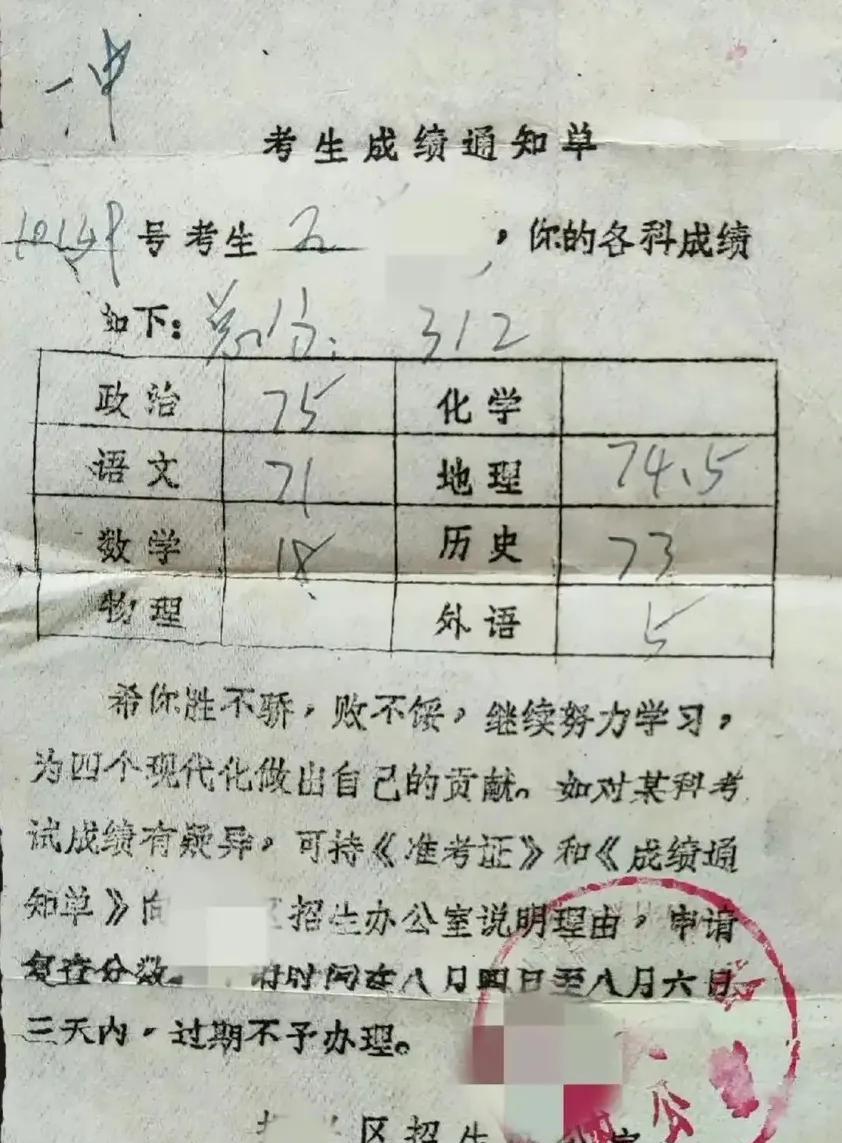 一中
考生成绩通知单
号考生 ，你的各科成绩
如下：总分：312
政治 75 化学
语文 71 地理 74.5
数学 18 历史 73
物理 外语 5
希你胜不骄，败不馁，继续努力学习，
为四个现代化做出自己的贡献。如对某科考
试成绩有疑异，可持《准考证》和《成绩通
知单》向 区招生办公室说明理由，申请
复查分数。 请时间在八月四日至八月六日
三天内，过期不予办理。
区招生